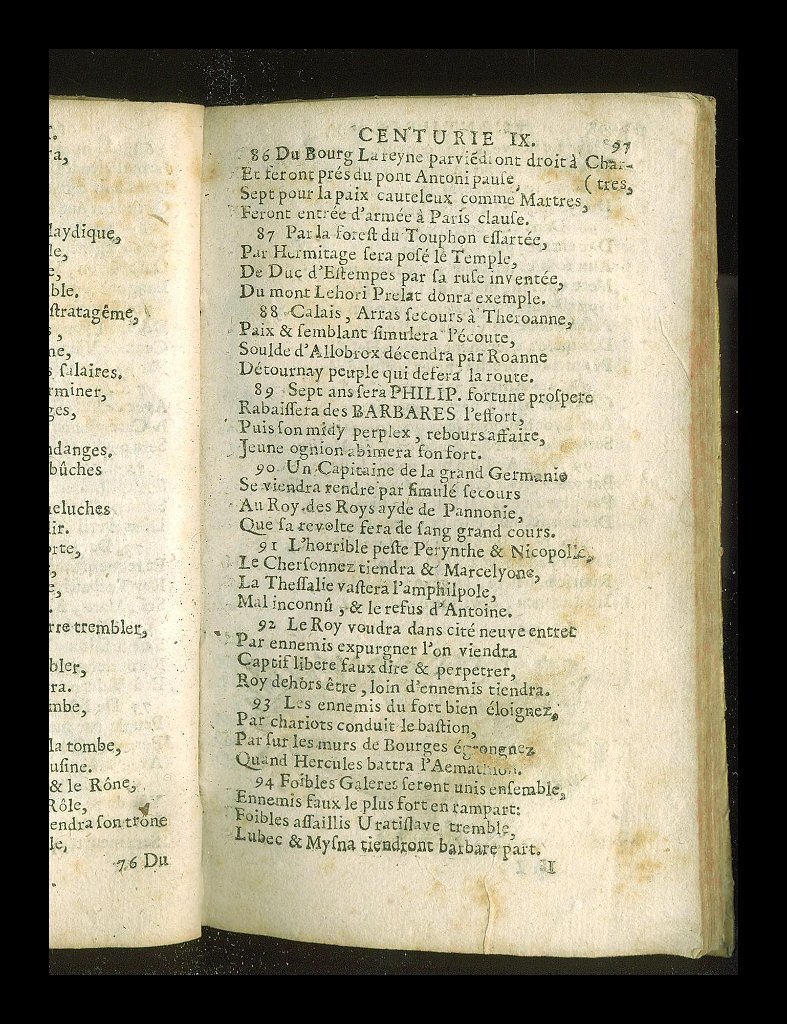 aydique,
ble.
stratagême,
salaires.
rminer,
ndanges.
bûches
eluches
rre trembler,
bler,
mbe,
la tombe,
usine.
& le Rône,
Rôle,
endra son trône
76 Du
CENTURIE IX. 97
86 Du Bourg Lareyne parviédront droit à Char-
Et feront prés du pont Antoni pause, ( tres,
Sept pour la paix cauteleux comme Martres,
Feront entrée d'armée à Paris clause.
87 Par la forest du Touphon essartée,
Par Hermitage sera posé le Temple,
De Duc d'Estempes par sa ruse inventée,
Du mont Lehori Prelat donra exemple.
88 Calais, Arras secours à Theroanne,
Paix & semblant simulera l'écoute,
Soulde d'Allobrox décendra par Roanne
Détournay peuple qui defera la route.
89 Sept ans sera PHILIP. fortune prospere
Rabaissera des BARBARES l'effort,
Puis son midy perplex, rebours affaire,
Jeune ognion abîmera son fort.
90 Un Capitaine de la grand Germanie
Se viendra rendre par simulé secours
Au Roy des Roys ayde de Pannonie,
Que sa revolte fera de sang grand cours.
91 L'horrible peste Perynthe & Nicopolle,
Le Chersonnez tiendra & Marcelyone,
La Thessalie vastera l'amphilpole,
Mal inconnû, & le refus d'Antoine.
92 Le Roy voudra dans cité neuve entrer
Par ennemis expurgner l'on viendra
Captif libere faux dire & perpetrer,
Roy dehors être, loin d'ennemis tiendra.
93 Les ennemis du fort bien éloignez,
Par chariots conduit le bastion,
Par sur les murs de Bourges égrongnez
Quand Hercules battra l'Aemathion.
94 Foibles Galeres seront unis ensemble,
Ennemis faux le plus fort en rampart:
Foibles assaillis Uratislave tremble,
Lubec & Mysna tiendront barbare part.
I